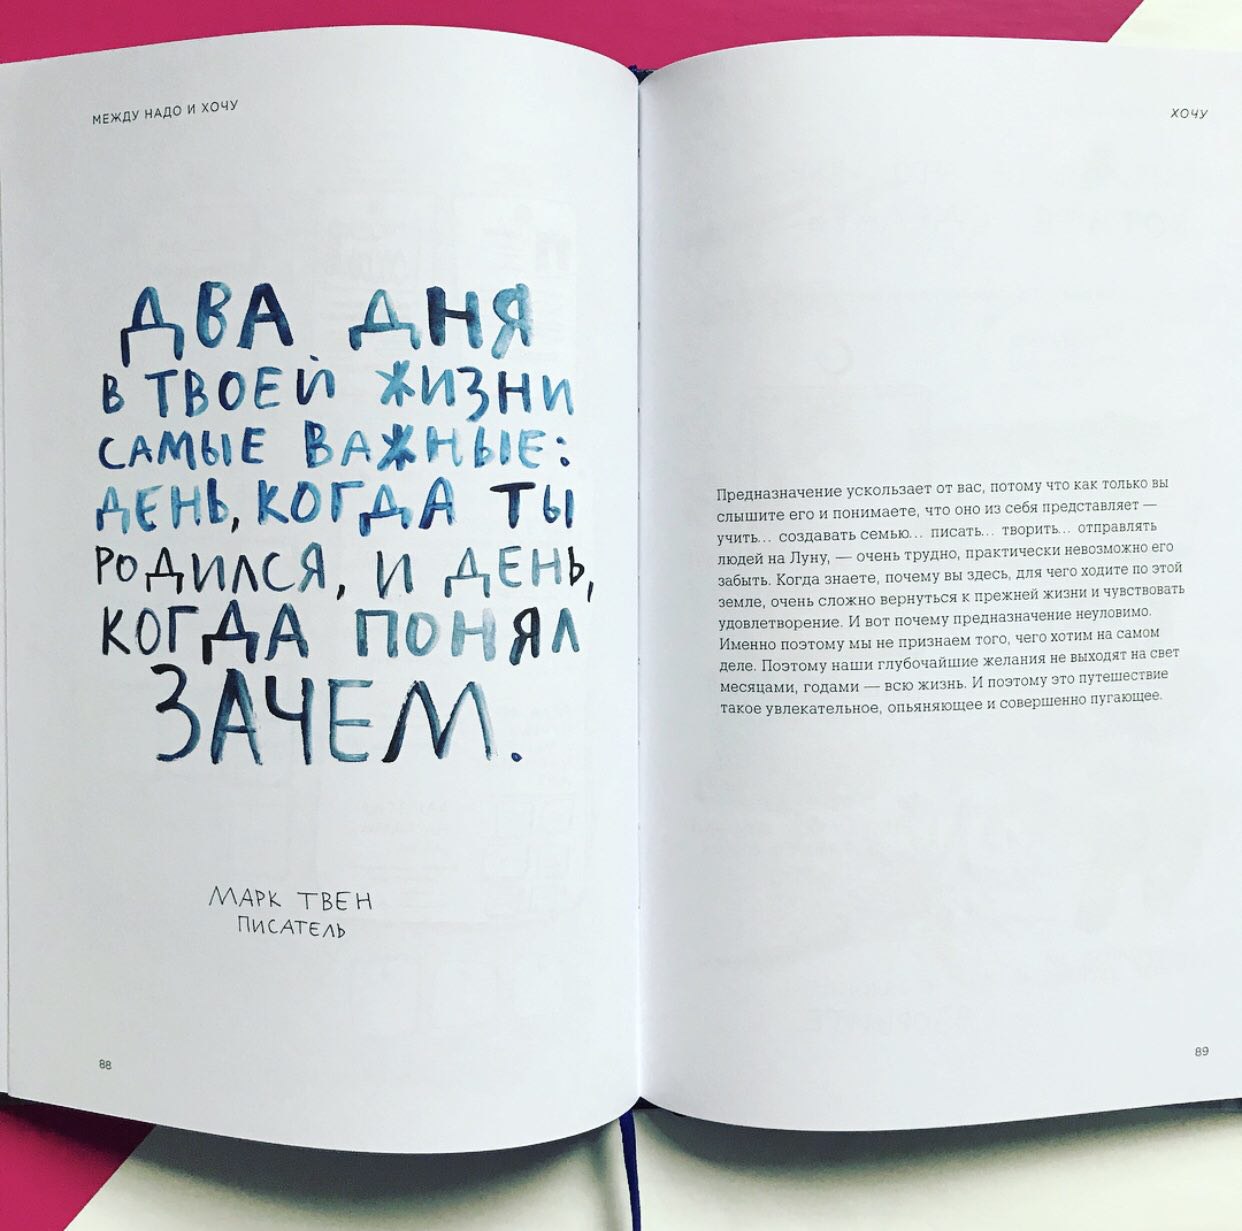 МЕЖДУ НАДО И ХОЧУ
ДВА ДНЯ
В ТВОЕЙ ЖИЗНИ
САМЫЕ ВАЖНЫЕ:
ДЕНЬ, КОГДА ТЫ
РОДИЛСЯ, И ДЕНЬ,
КОГДА ПОНЯЛ
ЗАЧЕМ.
МАРК ТВЕН
ПИСАТЕЛЬ
88
ХОЧУ
Предназначение ускользает от вас, потому что как только вы
слышите его и понимаете, что оно из себя представляет —
учить... создавать семью... писать... творить... отправлять
людей на Луну, — очень трудно, практически невозможно его
забыть. Когда знаете, почему вы здесь, для чего ходите по этой
земле, очень сложно вернуться к прежней жизни и чувствовать
удовлетворение. И вот почему предназначение неуловимо.
Именно поэтому мы не признаем того, чего хотим на самом
деле. Поэтому наши глубочайшие желания не выходят на свет
месяцами, годами — всю жизнь. И поэтому это путешествие
такое увлекательное, опьяняющее и совершенно пугающее.
89